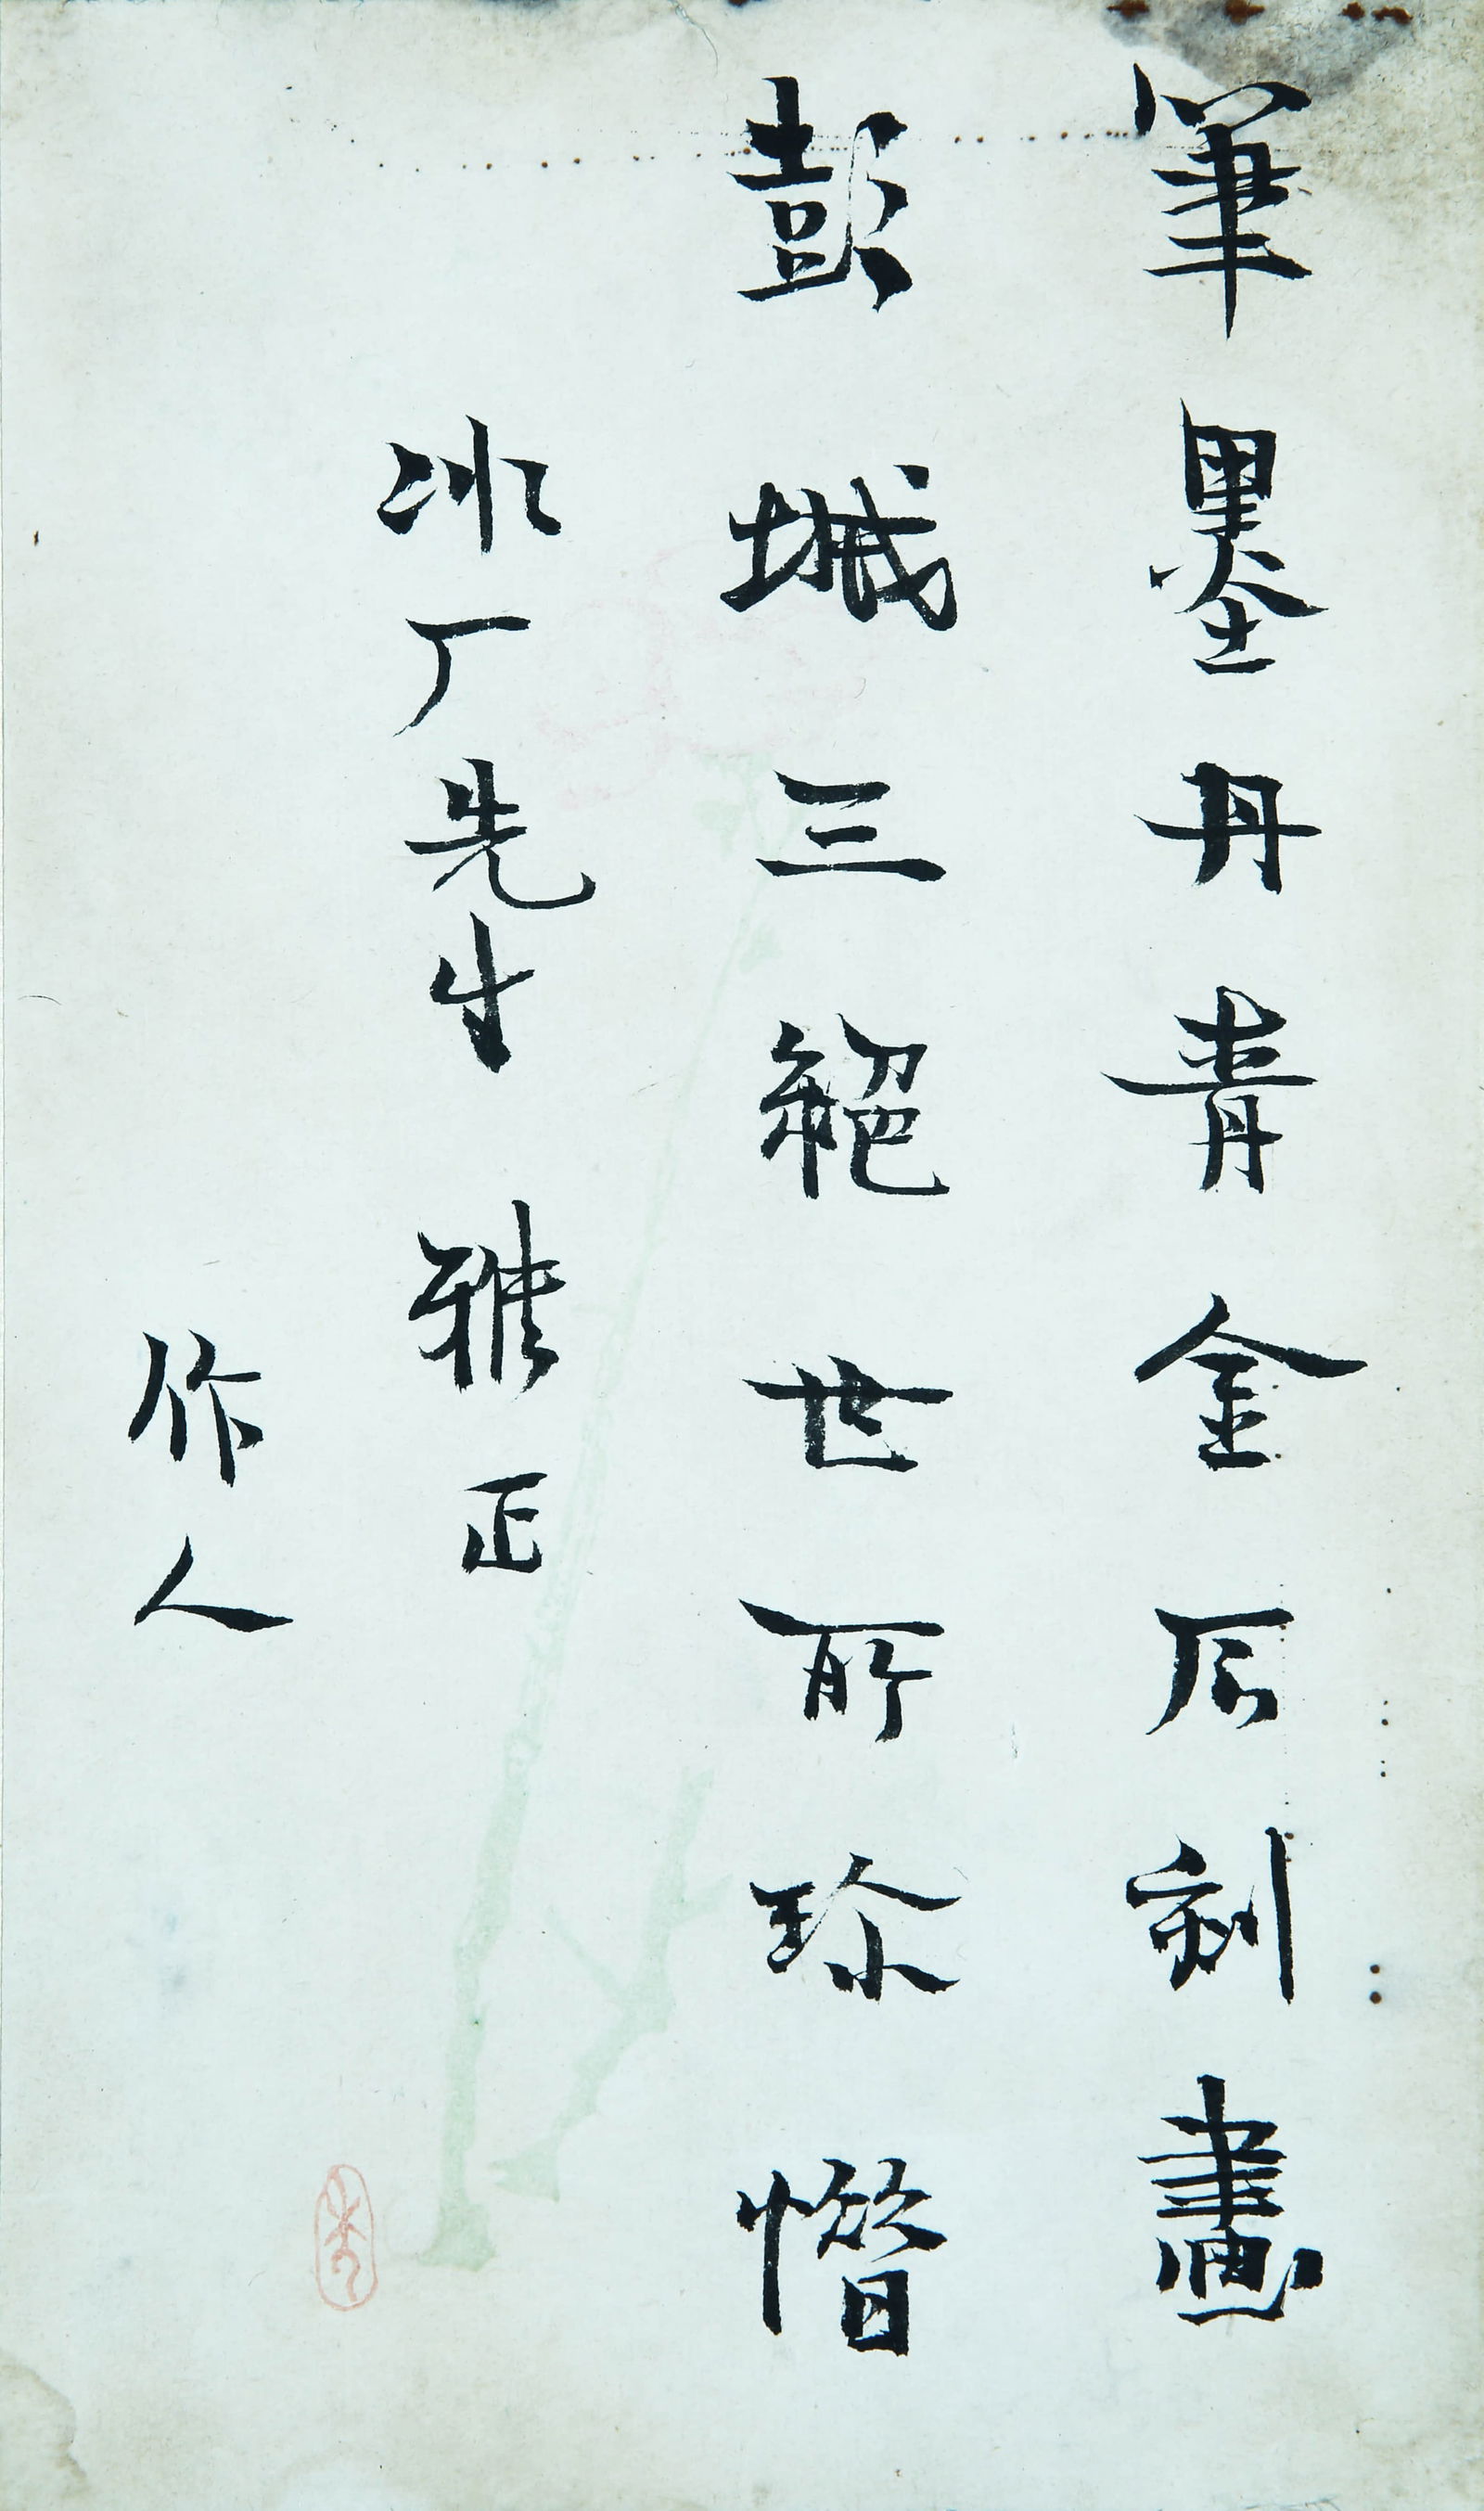 筆墨丹青金石刻畫
彭城三絕世所珍惜
冰厂先生 雅正
作人